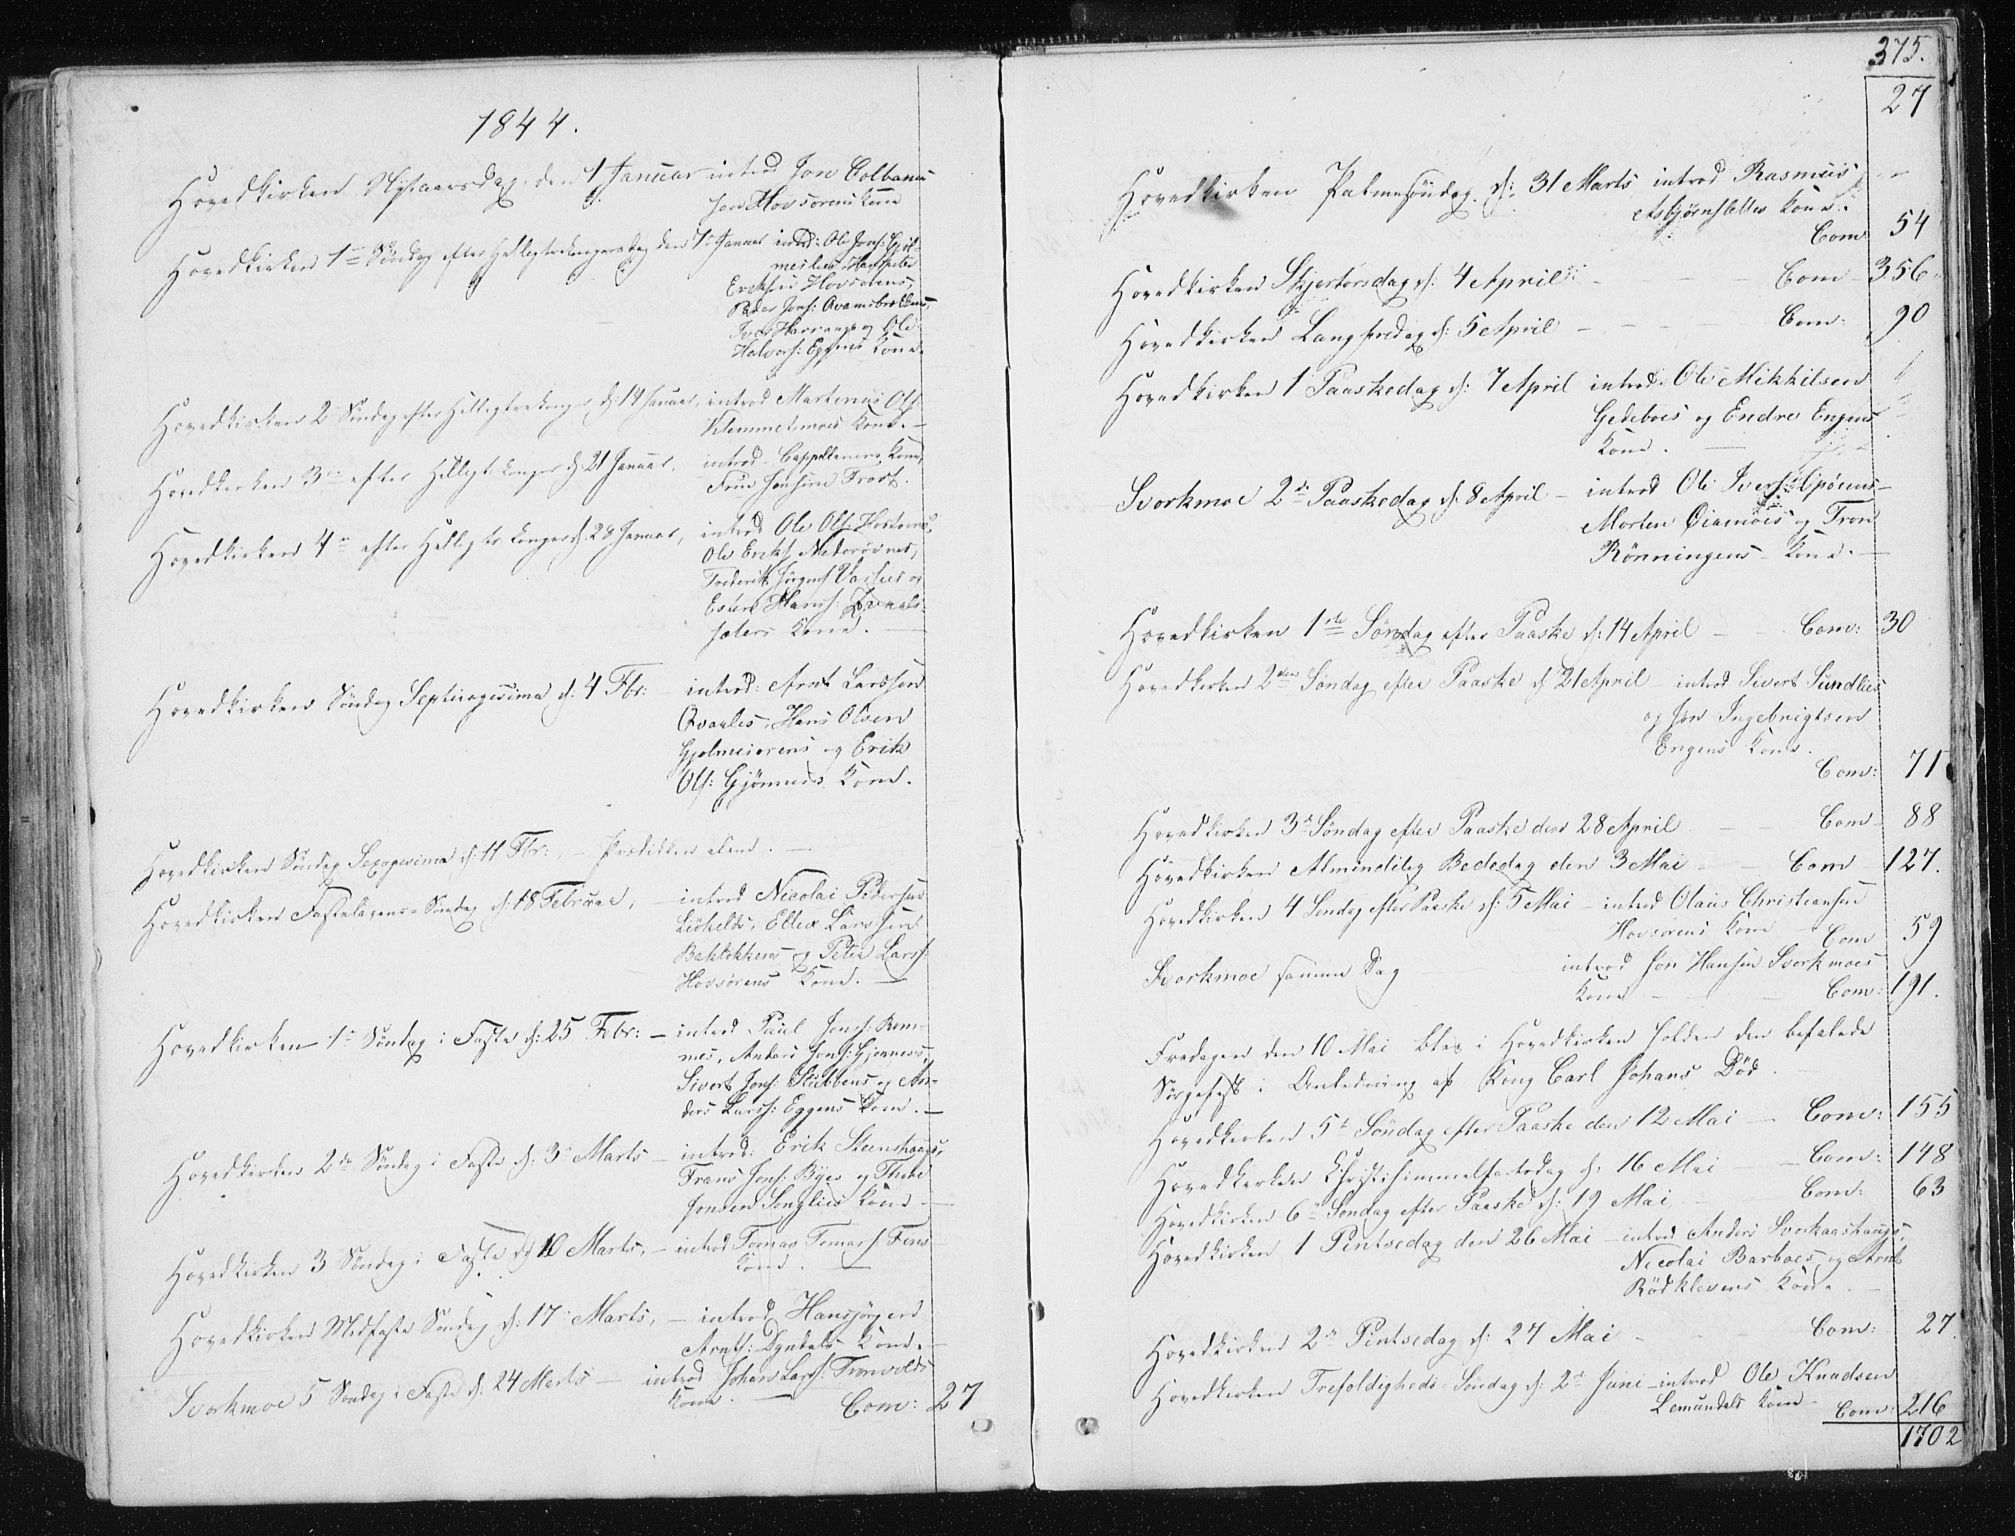 1844.
Hovedkirken Nytaarsdag den 1 Januar introd Jon Colbans
Jon Hovsørens Kone
Hovedkirken 1ste Søndag efter Helligtrekongersdag den 7 Januar introd: Ole Jons: Gjøl-
meslies, Hans Peter
Eriksen Hovsørens,
Peder Jons: Qvamsbrekkens,
Iver Harrangs og Ole
Halvors: Eggens Kone.
Hovedkirken 2 Søndag efter Helligtrekonger d: 14 Januar, introd Martinus Ols
Klemmetsmoes Kone. —
Hovedkirken 3die efter Helligtrekonger d: 21 Januar, introd. Cappellanens Kone,
Frue Jensine Trost.
Hovedkirken 4de efter Helligtr. konger d: 28 Januar, introd Ole Ols: Hostons,
Ole Eriks Nederøvnes,
Frederik Jørgens Vashus og
Esten Hans:
sæters Kone. —
Hovedkirken Søndag Septuagesima d: 4 Fbr: introd: Arnt Larssen
Qvaales, Hans Olsen
Gjølmeiorens og Erik
Ols: Gjønnes Kone.
Hovedkirken Søndag Sexagesima d: 11 Fbr: — Prædiken alene. —
Hovedkirken Fastelavens-Søndag d: 18 Februar, — introd Nicolai Pedersen
Liøkelds, Ellev Larssen
Bakløkkens og Peter Larss:
Hovsørens Kone. —
Hovedkirken 1ste Søndag i Faste d: 25 Febr: — introd Paul Jons: Rom-
mes, Anders Jons: Gjønnes,
Sivert Jons: Stubbens og An-
ders Larss: Eggens Kone. —
Hovedkirken 2den Søndag i Faste d: 3 Marts — introd: Erik Steenshaugs,
Frans Jons: Byes og
Jonsen Songlies Kone. —
Hovedkirken 3 Søndag i Faste d: 10 Marts, — introd Tomas Tomass: Fens
Kone. —
Hovedkirken Midfaste Søndag d: 17 Marts, — introd Hansjørgen
Arnts: Dyrdals Kone. —
Svorkmoe 5 Søndag i Faste d: 24 Marts — introd Johan Lars: Tronvolds
Kone. — Com: 27
375.
27
Hovedkirken Palmesøndag d: 31 Marts, introd Rasmus
Asbjørnslettes Kone.
Com 54
Hovedkirken Skjertorsdag d: 4 April — — — Com — 356
Hovedkirken Langfredag d: 5 April — — — Com: 90
Hovedkirken 1 Paaskedag d: 7 April introd: Ole Mikkelsen
Gedeboes og Endre Engens
Kone. —
Svorkmoe 2den Paaskedag d: 8 April — introd Ole Ivers:
Morten Øiamoes og Tron
Rønningens Kone. —
Hovedkirken 1ste Søndag efter Paaske d: 14 April — — Com: 30
Hovedkirken 2den Søndag efter Paaske d: 21 April — introd Sivert Sundlies
og Jon Ingebrigtsen
Engens Kone.
Com: 71
Hovedkirken 3die Søndag efter Paaske den 28 April — Com — 88
Hovedkirken Almindelig Bededag den 3 Mai — Com — 127.
Hovedkirken 4 Søndag efter Paaske d: 5 Mai — introd Olaus Christiansen
Hovsørens Kone — Com 59
Svorkmoe samme Dag introd Jon Hansen Svorkmoes
Kone — — Com: 191.
Fredagen den 10 Mai blev i Hovedkirken holden den befalede
Sørgefest i Anledning af Kong Carl Johans Død. —
Hovedkirken 5te Søndag efter Paaske den 12 Mai — Com: 155
Hovedkirken Christihimmelfartsdag d: 16 Mai — — Com: 148
Hovedkirken 6te Søndag efter Paaske d: 19 Mai — — Com: 63
Hovedkirken 1 Pintsedag den 26 Mai — introd Anders Svorkaashaugs,
Nicolai Barboes og Arnt
Rødklevens Kone. —
Hovedkirken 2den Pintsedag d: 27 Mai — — Com: 27.
Hovedkirken Trefoldigheds-Søndag d: 2den Juni — introd Ole Knudsen
Lomundals Kone — Com: 216
1702